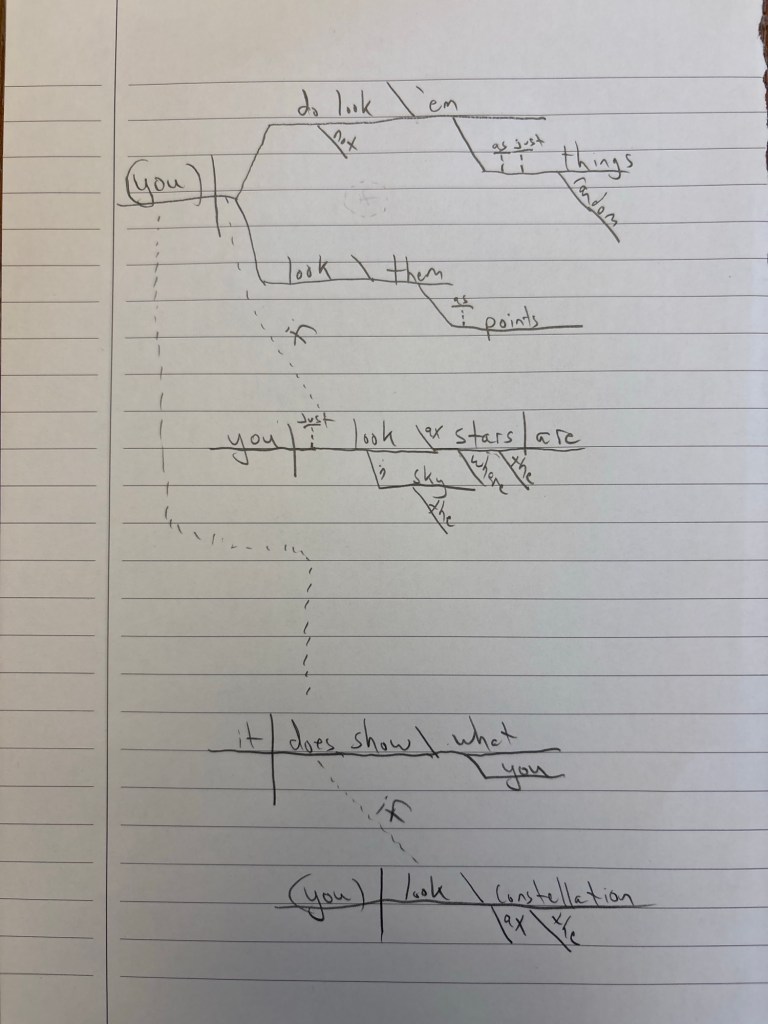 do look 'em
not
as just things
random
(you)
look them
as points
if
just
you look at stars are
in sky where the
the
it does show what
you
if
(you) look constellation
at the